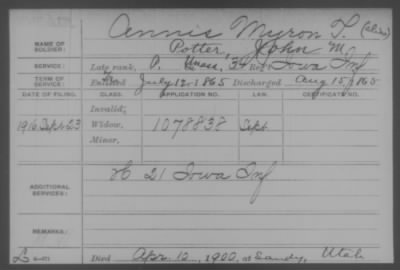 Annis Myron T. (alias)
NAME OF SOLDIER: Potter, John M.
SERVICE: Late rank, P. Unass, 34 Reg't Iowa Inf
TERM OF SERVICE: Enlisted July 12, 1865 Discharged Aug 15, 1865
DATE OF FILING. CLASS. APPLICATION NO. LAW. CERTIFICATE NO.
Invalid,
1916 Sept 23 Widow, 1078838 Sept.
Minor,
ADDITIONAL SERVICES: H 21 Iowa Inf
REMARKS:
Died Apr. 12, 1900, at Sandy, Utah